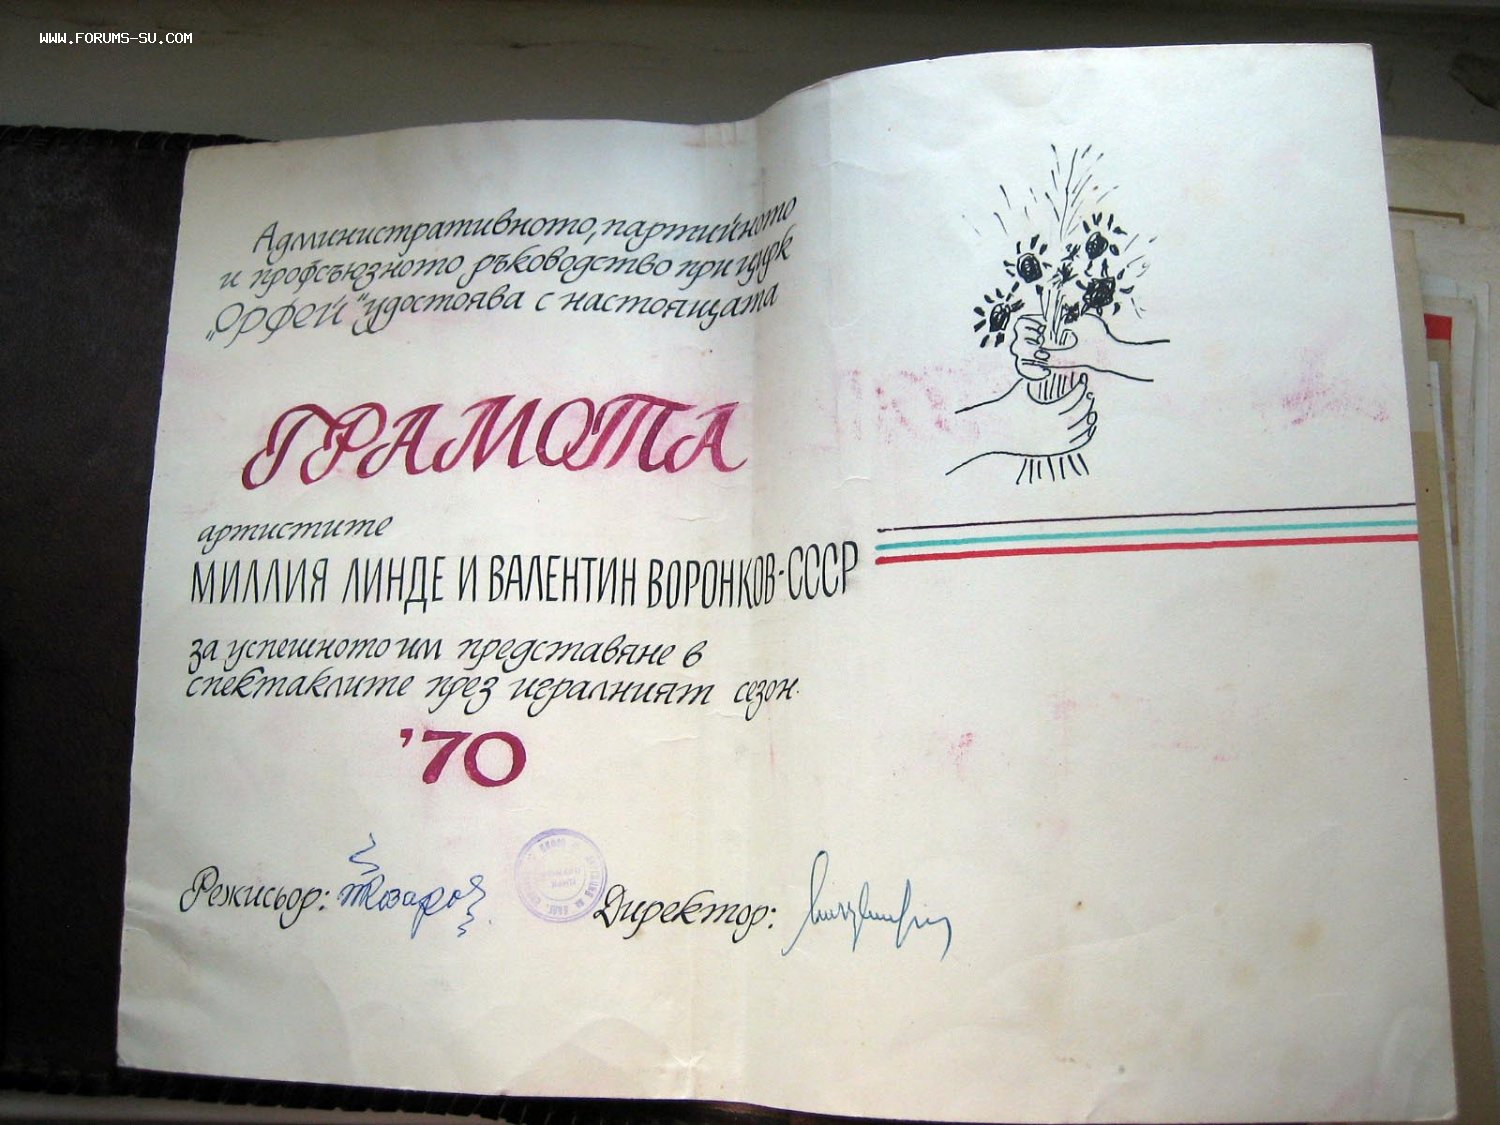 WWW.FORUMS-SU.COM
Административното, партийното
и профсъюзното ръководство при
„Орфей" удостоява с настоящата
ГРАМОТА
артистите
МИЛЛИЯ ЛИНДЕ И ВАЛЕНТИН ВОРОНКОВ-СССР
за успешното им представяне в
спектаклите през игралният сезон.
'70
Режисьор:
Директор: